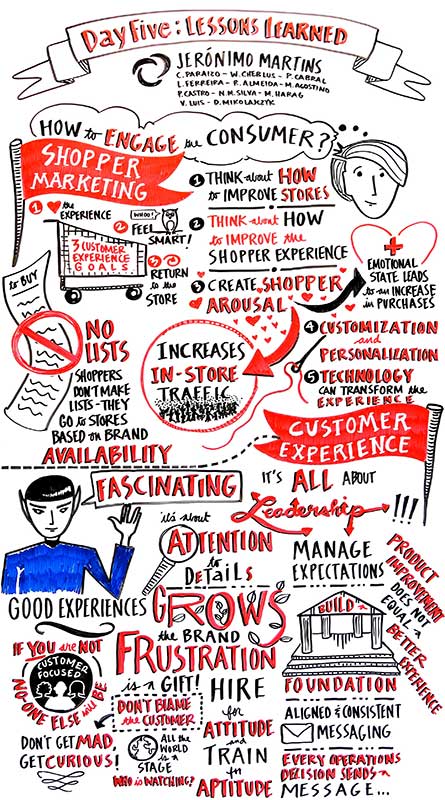 Day Five: Lessons Learned
JERÓNIMO MARTINS
C. PARAIZO - W. CHERLUS - P. CABRAL
L. FERREIRA - R. ALMEIDA - M. AGOSTINO
P. CASTRO - N.M. SILVA - M. HARAG
V. LUIS - D. MIKOLAJCZYK
HOW to ENGAGE the CONSUMER?
SHOPPER
MARKETING
1 the
EXPERIENCE
2 FEEL
WHOO!
SMART!
3 CUSTOMER
EXPERIENCE
GOALS
3
RETURN
to the
STORE
1 THINK about HOW
to IMPROVE STORES
2 THINK about HOW
to IMPROVE the
SHOPPER EXPERIENCE
3 CREATE SHOPPER
AROUSAL
EMOTIONAL
STATE LEADS
to an INCREASE
in PURCHASES
4 CUSTOMIZATION
and
PERSONALIZATION
5 TECHNOLOGY
CAN TRANSFORM the
EXPERIENCE
to BUY
NO
LISTS
SHOPPERS
DON'T MAKE
LISTS - THEY
GO to STORES
BASED on BRAND
AVAILABILITY
INCREASES
IN-STORE
TRAFFIC
CUSTOMER
EXPERIENCE
FASCINATING
IT'S ALL ABOUT
Leadership
!!!
it's about
ATTENTION
to
DETAILS
MANAGE
EXPECTATIONS
PRODUCT
IMPROVEMENT
DOES NOT
EQUAL a
BETTER
EXPERIENCE
GOOD EXPERIENCES
GROWS
the BRAND
FRUSTRATION
is a GIFT!
BUILD a
FOUNDATION
IF YOU are NOT
CUSTOMER
FOCUSED
NO ONE ELSE will BE
DON'T BLAME
the CUSTOMER
DON'T GET MAD,
GET CURIOUS!
ALL the
WORLD
is a
STAGE
WHO is WATCHING?
HIRE
for
ATTITUDE
and
TRAIN
for
APTITUDE
ALIGNED & CONSISTENT
MESSAGING
EVERY OPERATIONS
DECISION SENDS a
MESSAGE...